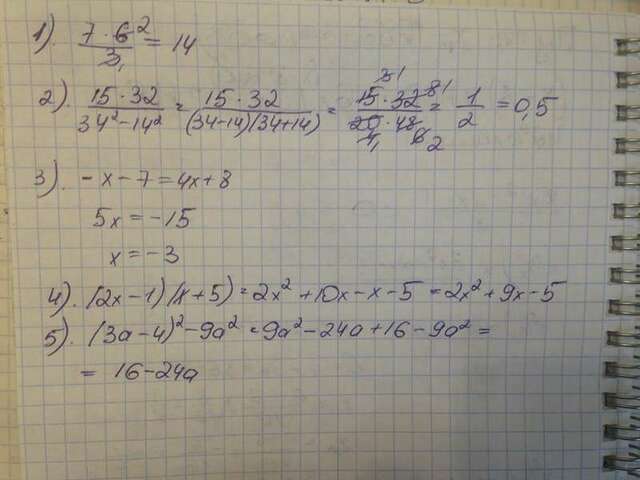 1). (7 · 6²)/3₁ = 14
2). (15 · 32)/(34² - 14²) = (15 · 32)/((34-14)(34+14)) = (15 · 32)/(20 · 48) = 1/2 = 0,5
3). - x - 7 = 4x + 8
5x = -15
x = -3
4). (2x - 1)(x + 5) = 2x² + 10x - x - 5 = 2x² + 9x - 5
5). (3a - 4)² - 9a² = 9a² - 24a + 16 - 9a² =
= 16 - 24a